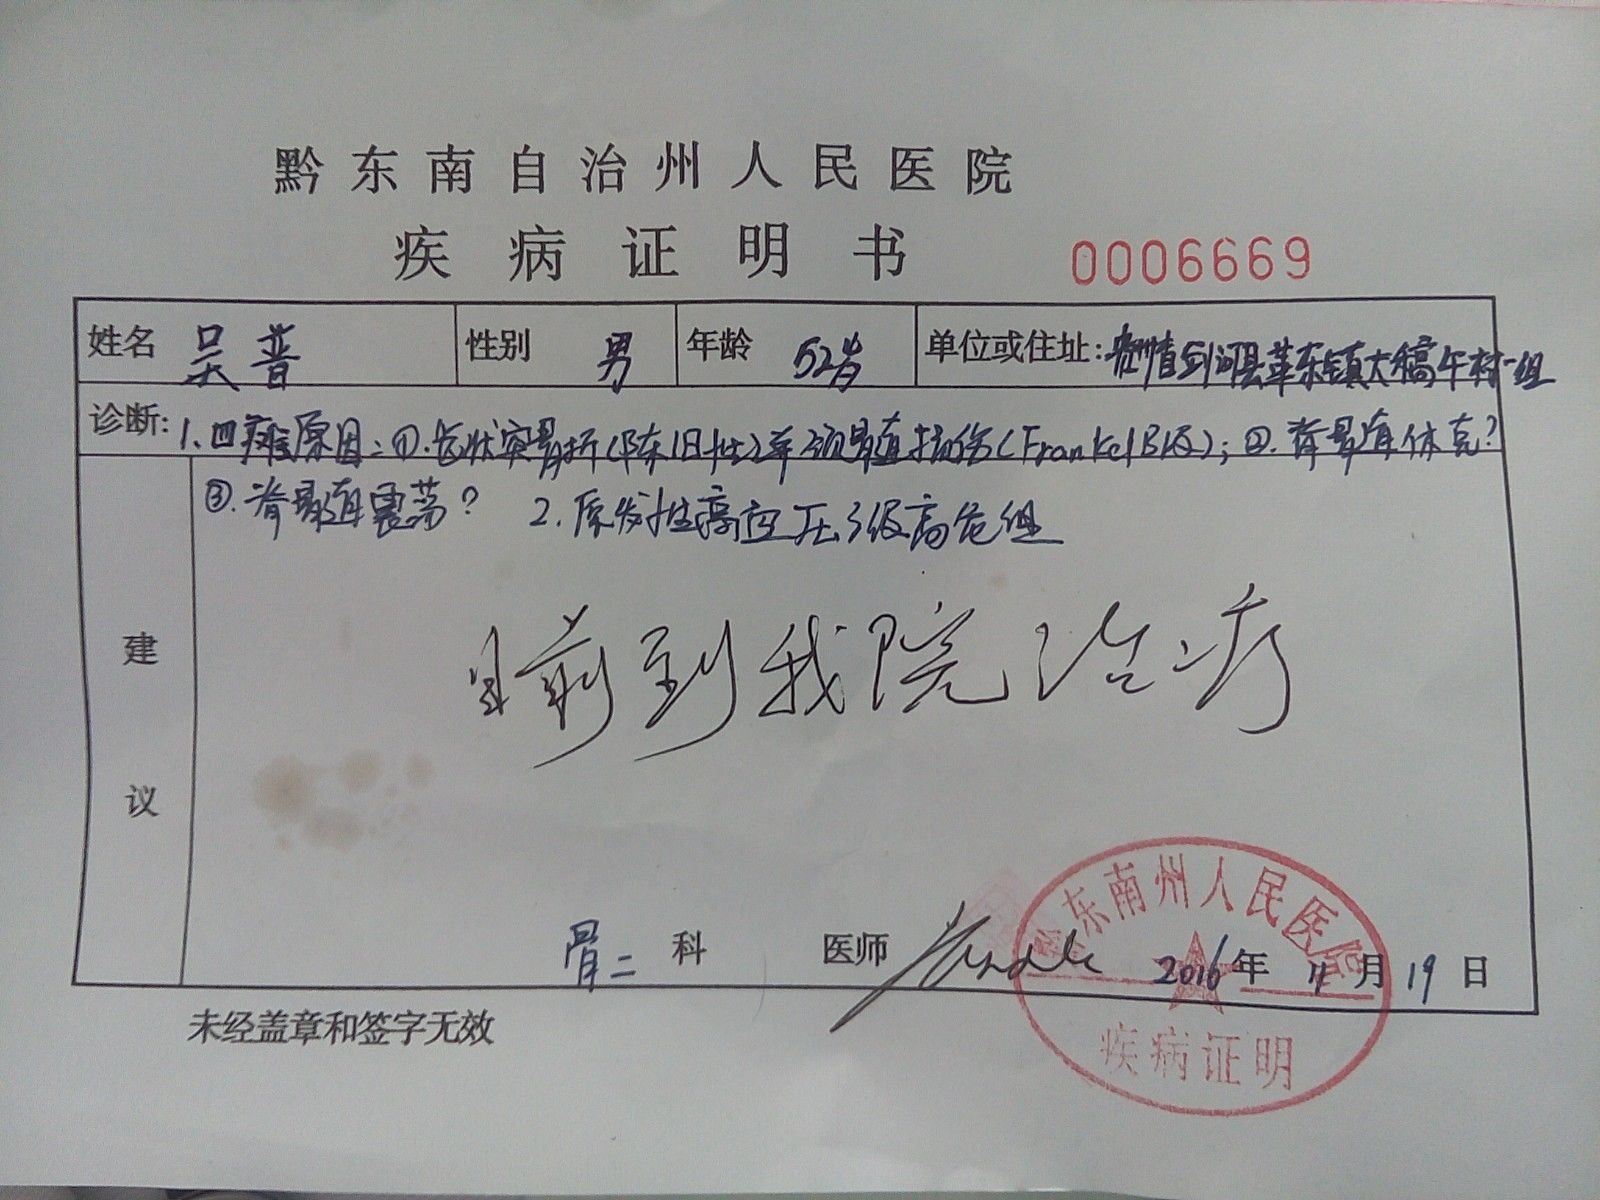 黔东南自治州人民医院
疾病证明书 0006669
姓名 吴普 性别 男 年龄 52岁 单位或住址: 贵州省剑河县革东镇大稿午村一组
诊断: 1.四瘫原因:①.齿状突骨折(陈旧性)并颈髓损伤(Frankel B级);②.脊髓休克?
③.脊髓震荡? 2.原发性高血压3级高危组
建议
目前到我院治疗
骨二 科 医师 2016年 4月19日
未经盖章和签字无效
黔东南州人民医院
疾病证明